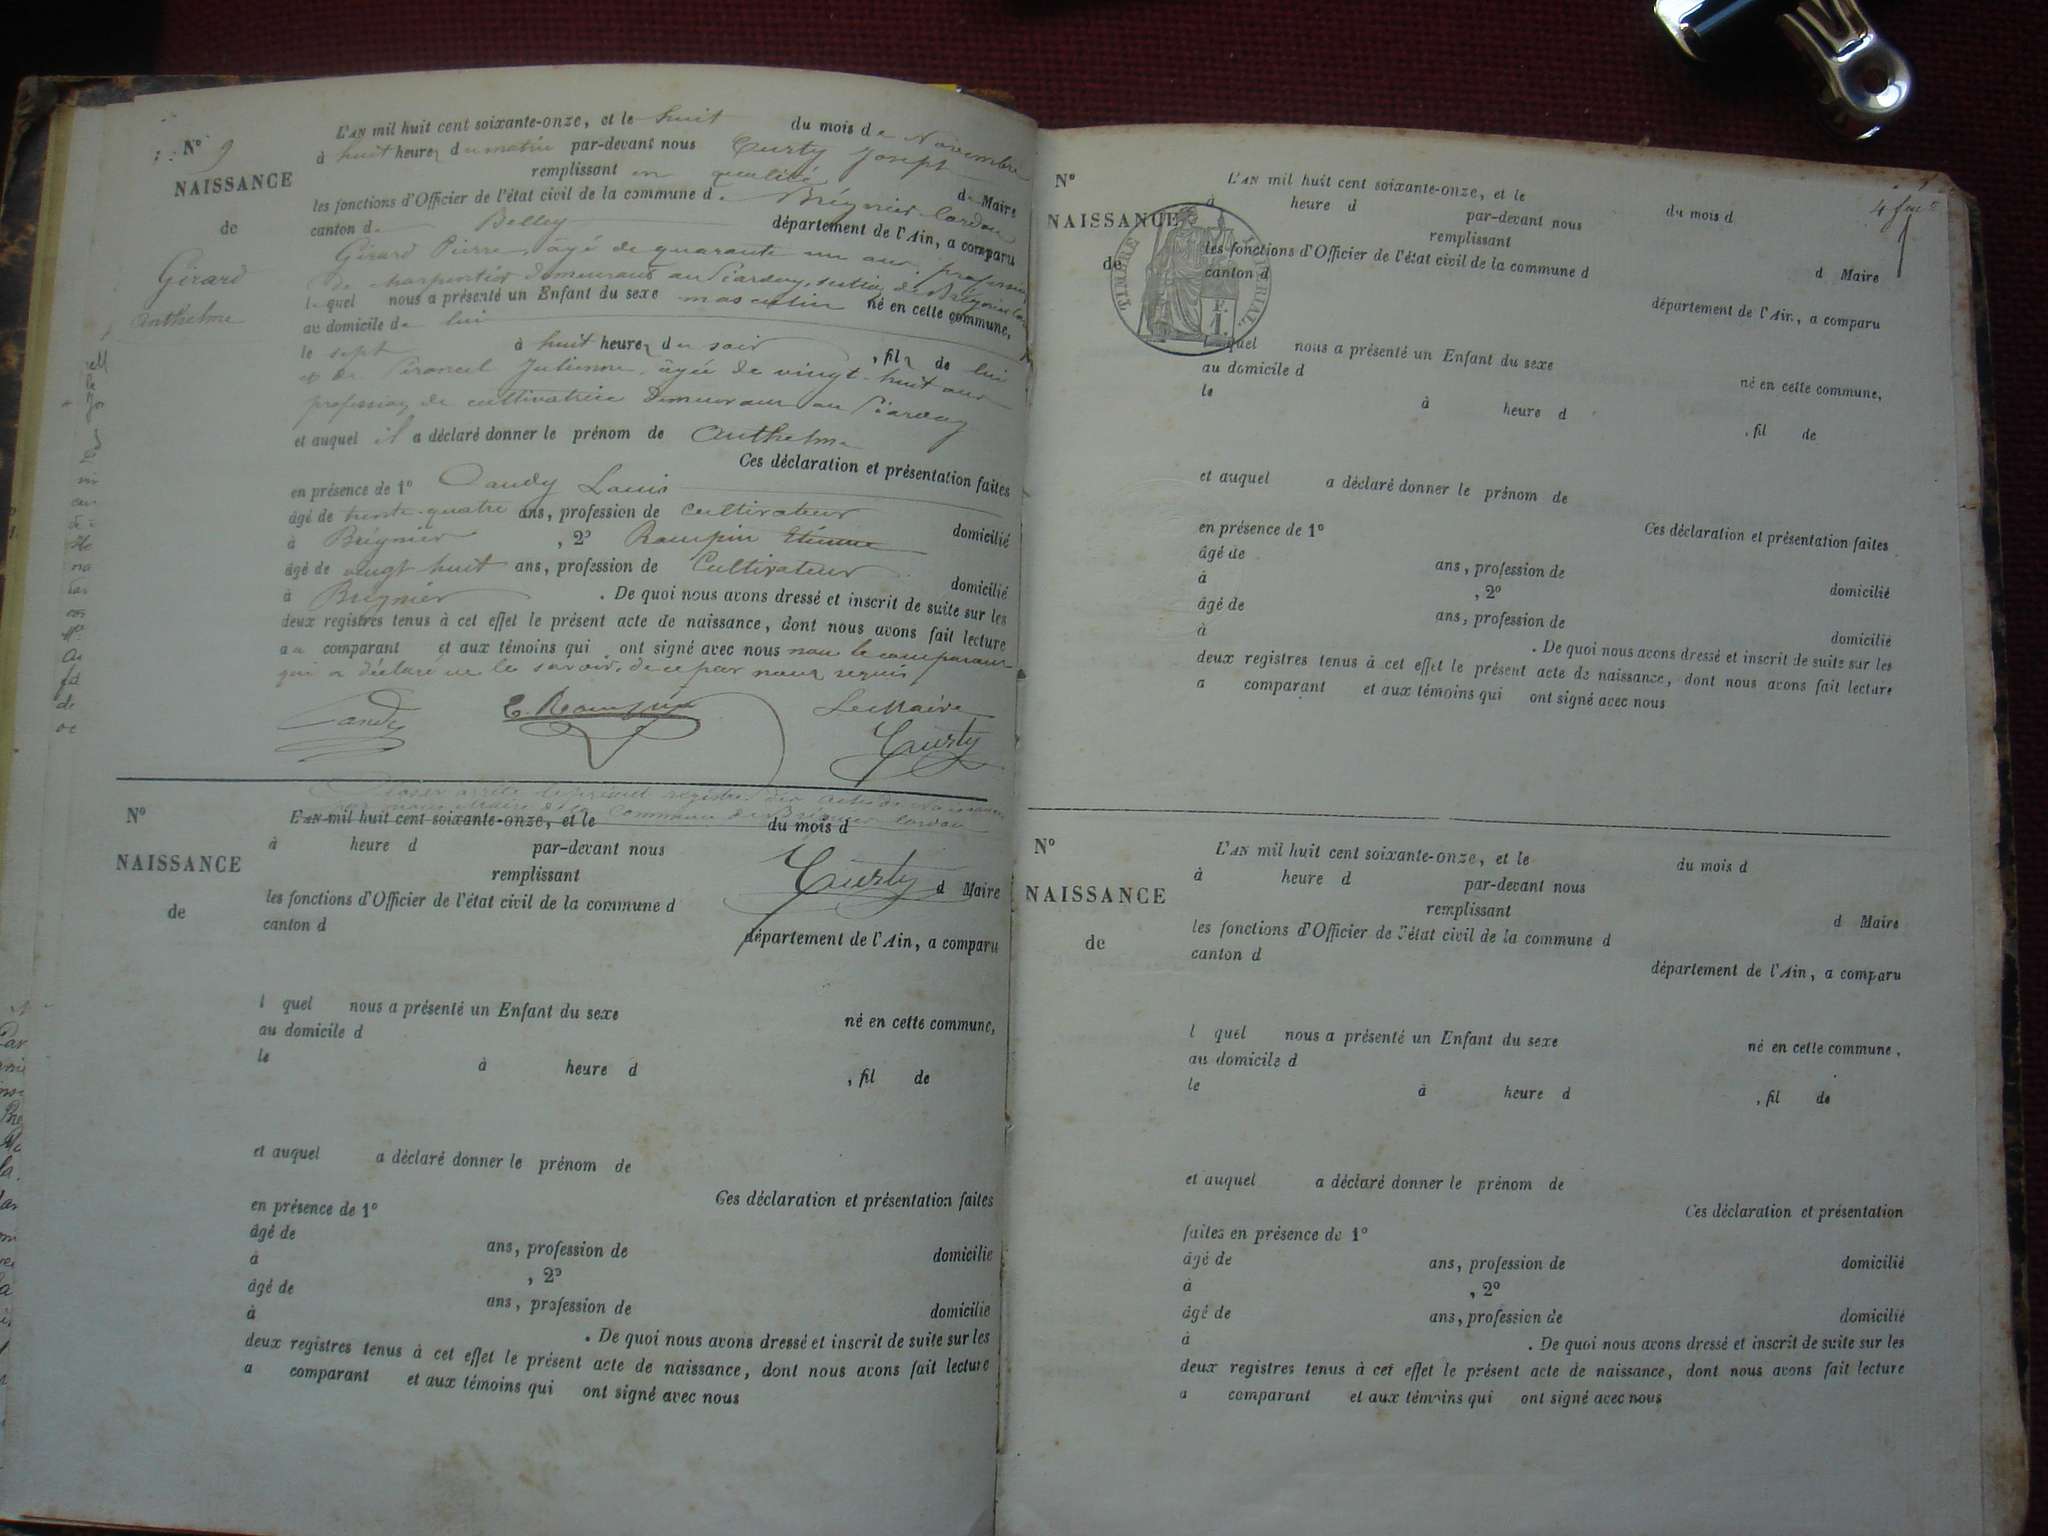 N° 9
NAISSANCE
de
Gérard
Anthelme
L'AN mil huit cent soixante-onze, et le huit du mois de Novembre
à huit heures du matin par-devant nous Curty Joseph
remplissant en qualité de Maire
les fonctions d'Officier de l'état civil de la commune de Brégnier Cordon
canton de Belley département de l'Ain, a comparu
Gérard Pierre, âgé de quarante un ans, profession
de charpentier demeurant au section de Brégnier
lequel nous a présenté un Enfant du sexe masculin né en cette commune,
au domicile de lui
le sept à huit heures du soir, fils de lui
et de Julienne, âgée de vingt-huit ans
profession de cultivatrice demeurant au
et auquel il a déclaré donner le prénom de Anthelme
Ces déclaration et présentation faites
en présence de 1° Candy Louis
âgé de trente-quatre ans, profession de cultivateur domicilié
à Brégnier, 2° Rampin Etienne
âgé de vingt huit ans, profession de Cultivateur domicilié
à Brégnier. De quoi nous avons dressé et inscrit de suite sur les
deux registres tenus à cet effet le présent acte de naissance, dont nous avons fait lecture
au comparant et aux témoins qui ont signé avec nous non le comparant
qui a déclaré ne le savoir, de ce par nous requis
Candy E. Rampin Le Maire
Curty
Clos et arrêté le présent registre des actes de Naissances
par nous Maire de la Commune de Brégnier Cordon
Curty
N°
NAISSANCE
de
L'AN mil huit cent soixante-onze, et le du mois d
à heure d par-devant nous
remplissant d Maire
les fonctions d'Officier de l'état civil de la commune d
canton d département de l'Ain, a comparu
l quel nous a présenté un Enfant du sexe né en cette commune,
au domicile d
le à heure d , fil de
et auquel a déclaré donner le prénom de
Ces déclaration et présentation faites
en présence de 1°
âgé de ans, profession de domicilié
à , 2°
âgé de ans, profession de domicilié
à . De quoi nous avons dressé et inscrit de suite sur les
deux registres tenus à cet effet le présent acte de naissance, dont nous avons fait lecture
a comparant et aux témoins qui ont signé avec nous
N°
NAISSANCE
de
TIMBRE IMPÉRIAL
F.
1.
L'AN mil huit cent soixante-onze, et le du mois d
à heure d par-devant nous
remplissant d Maire
les fonctions d'Officier de l'état civil de la commune d
canton d département de l'Ain, a comparu
l quel nous a présenté un Enfant du sexe né en cette commune,
au domicile d
le à heure d , fil de
et auquel a déclaré donner le prénom de
Ces déclaration et présentation faites
en présence de 1°
âgé de ans, profession de domicilié
à , 2°
âgé de ans, profession de domicilié
à . De quoi nous avons dressé et inscrit de suite sur les
deux registres tenus à cet effet le présent acte de naissance, dont nous avons fait lecture
a comparant et aux témoins qui ont signé avec nous
N°
NAISSANCE
de
L'AN mil huit cent soixante-onze, et le du mois d
à heure d par-devant nous
remplissant d Maire
les fonctions d'Officier de l'état civil de la commune d
canton d département de l'Ain, a comparu
l quel nous a présenté un Enfant du sexe né en cette commune,
au domicile d
le à heure d , fil de
et auquel a déclaré donner le prénom de
Ces déclaration et présentation
faites en présence de 1°
âgé de ans, profession de domicilié
à , 2°
âgé de ans, profession de domicilié
à . De quoi nous avons dressé et inscrit de suite sur les
deux registres tenus à cet effet le présent acte de naissance, dont nous avons fait lecture
a comparant et aux témoins qui ont signé avec nous